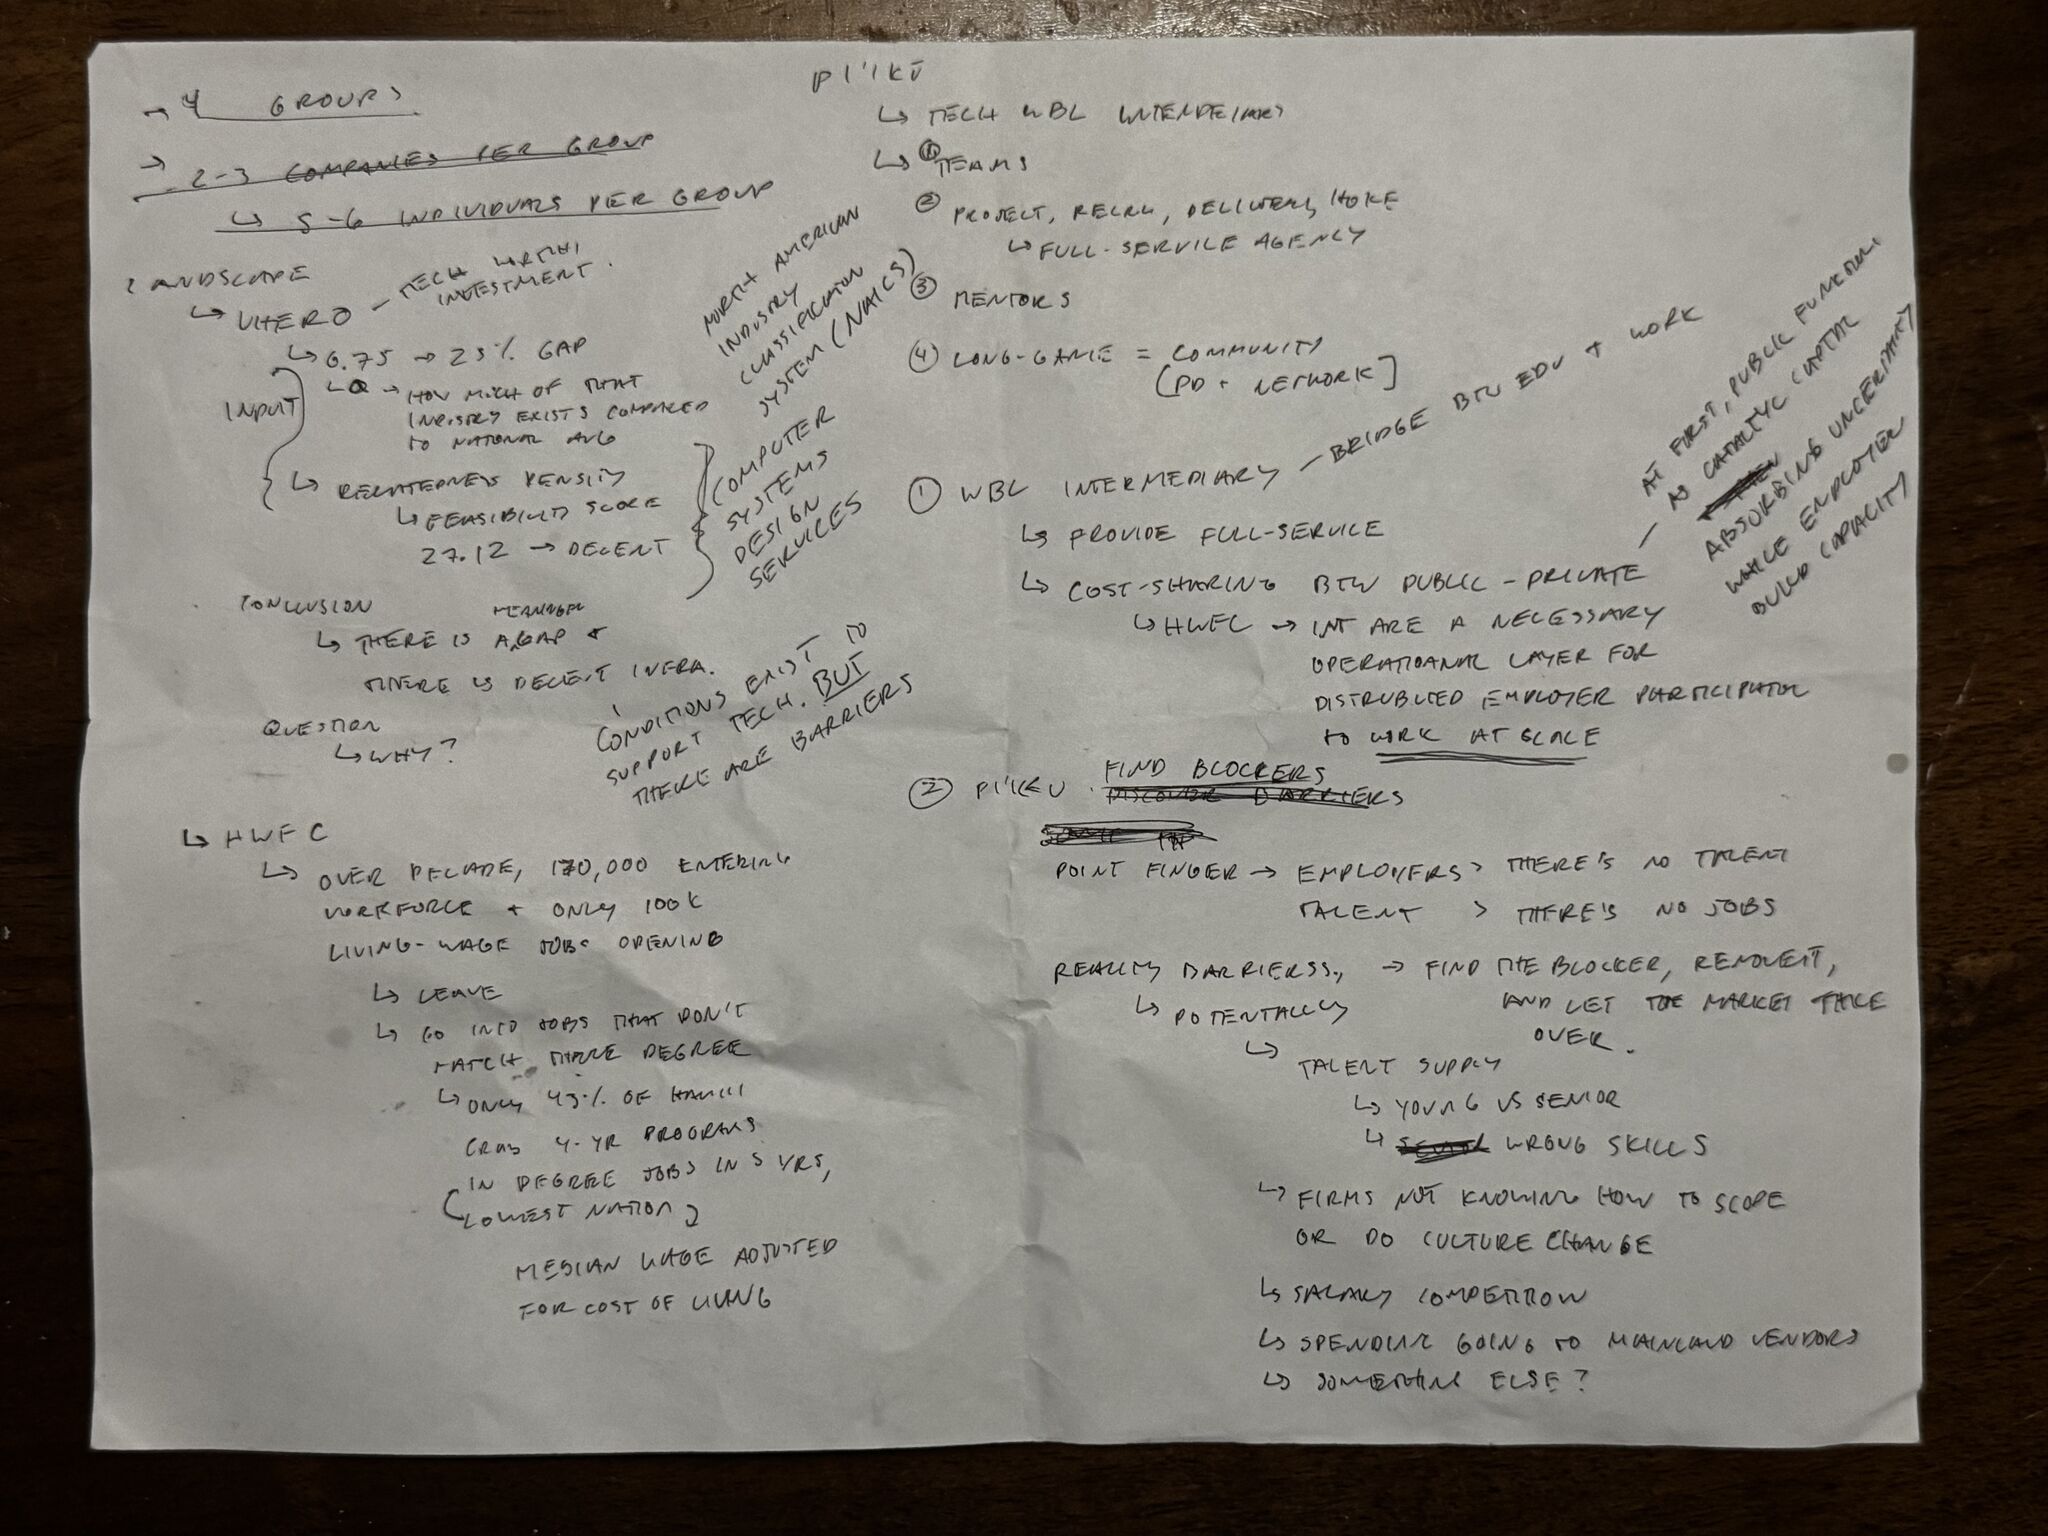 → 4 GROUPS
→ 2-3 COMPANIES PER GROUP
↳ 5-6 INDIVIDUALS PER GROUP
LANDSCAPE
↳ UHERO — TECH WORTH
INVESTMENT.
↳ 0.75 → 25% GAP
INPUT
↳ Q → HOW MUCH OF THAT
INDUSTRY EXISTS COMPARED
TO NATIONAL AVG
↳ RELATEDNESS DENSITY
↳ FEASIBILITY SCORE
27.12 → DECENT
NORTH AMERICAN
INDUSTRY
CLASSIFICATION
SYSTEM (NAICS)
COMPUTER
SYSTEMS
DESIGN
SERVICES
CONCLUSION
↳ THERE IS A GAP +
THERE IS DECENT INFRA.
CONDITIONS EXIST TO
SUPPORT TECH. BUT
THERE ARE BARRIERS
QUESTION
↳ WHY?
↳ HWFC
↳ OVER DECADE, 170,000 ENTERING
WORKFORCE + ONLY 100K
LIVING-WAGE JOBS OPENING
↳ LEAVE
↳ GO INTO JOBS THAT DON'T
MATCH THEIR DEGREE
↳ ONLY 43% OF HAWAII
GRADS 4-YR PROGRAMS
IN DEGREE JOBS IN 5 YRS,
LOWEST NATION
MEDIAN WAGE ADJUSTED
FOR COST OF LIVING
PI'IKU
↳ TECH WBL INTERMEDIARY
↳ ① TEAMS
② PROJECT, RECRU, DELIVERY, MORE
↳ FULL-SERVICE AGENCY
③ MENTORS
④ LONG-GAME = COMMUNITY
(PD + NETWORK]
① WBL INTERMEDIARY — BRIDGE BTW EDU + WORK
↳ PROVIDE FULL-SERVICE
↳ COST-SHARING BTW PUBLIC-PRIVATE —
AT FIRST, PUBLIC FUNDING
AS CATALYTIC CAPITAL
ABSORBING UNCERTAINTY
WHILE EMPLOYER
BUILD CAPACITY
↳ HWFC → INT ARE A NECESSARY
OPERATIOANAL LAYER FOR
DISTRUBUTED EMPLOYER PARTICIPATION
TO WORK AT SCALE
② PI'IKU · FIND BLOCKERS
DISCOVER BARRIERS
POINT FINGER → EMPLOYERS > THERE'S NO TALENT
TALENT > THERE'S NO JOBS
REALITY BARRIERSS, → FIND THE BLOCKER, REMOVE IT,
AND LET THE MARKET TAKE
OVER.
↳ POTENTALLY
↳ TALENT SUPPLY
↳ YOUNG VS SENIOR
↳ WRONG SKILLS
↳ FIRMS NOT KNOWING HOW TO SCOPE
OR DO CULTURE CHANGE
↳ SALARY COMPETITION
↳ SPENDING GOING TO MAINLAND VENDORS
↳ SOMETHING ELSE?